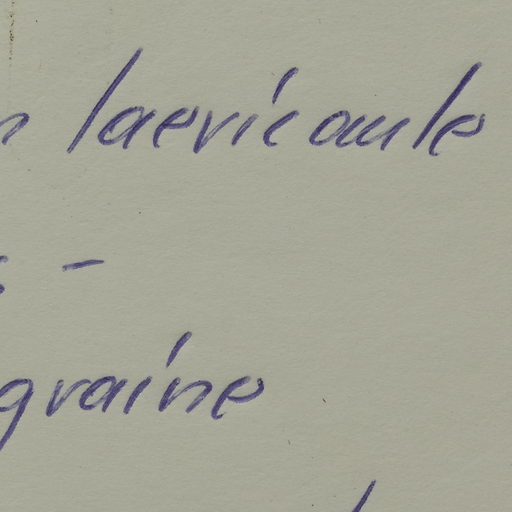 laevicaule
-
graine